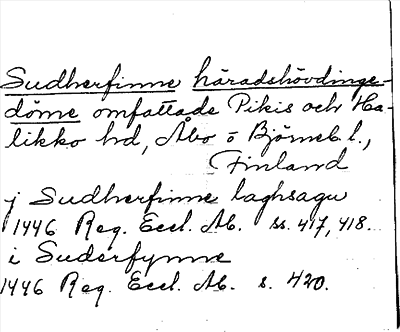 Sudherfinne häradshövdinge-
döme omfattade Pikis och Ha-
likko hd, Åbo o Björneb l.,
Finland
j Sudherfinne laghsagu
1446 Reg. Eccl. Ab. ss. 417, 418.
i Suderfynne
1446 Reg. Eccl. Ab. s. 420.